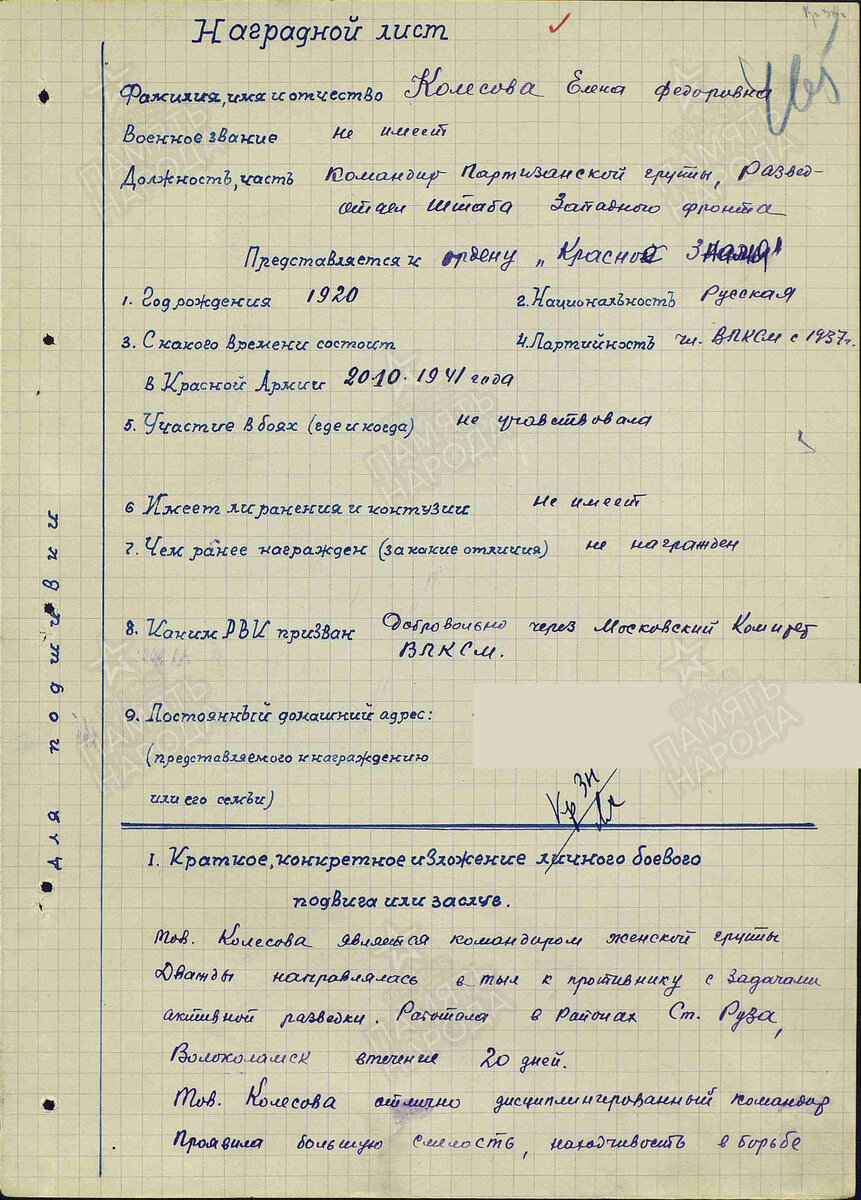 Наградной лист
Фамилия, имя и отчество Колесова Елена Федоровна
Военное звание не имеет
Должность, часть Командир Партизанской группы, Развед-
отдел штаба Западного фронта
Представляется к ордену „Красное Знамя"
1. Год рождения 1920
2. Национальность Русская
3. С какого времени состоит
4. Партийность чл. ВЛКСМ с 1937г.
в Красной Армии 20.10.1941 года
5. Участие в боях (где и когда) не учавствовала
6 Имеет ли ранения и контузии не имеет
7. Чем ранее награжден (за какие отличия) не награжден
8. Каким РВК призван Добровольно через Московский Комитет
ВЛКСМ.
9. Постоянный домашний адрес:
(представляемого к награждению
или его семьи)
Кр Зн
I. Краткое, конкретное изложение личного боевого
подвига или заслуг.
Тов. Колесова является командиром женской группы
Дважды направлялась в тыл к противнику с задачами
активной разведки. Работала в районах Ст. Руза,
Волоколамск втечение 20 дней.
Тов. Колесова отлично дисциплинированный командир
Проявила большую смелость, находчивость в борьбе
для подшивки
ПАМЯТЬ НАРОДА